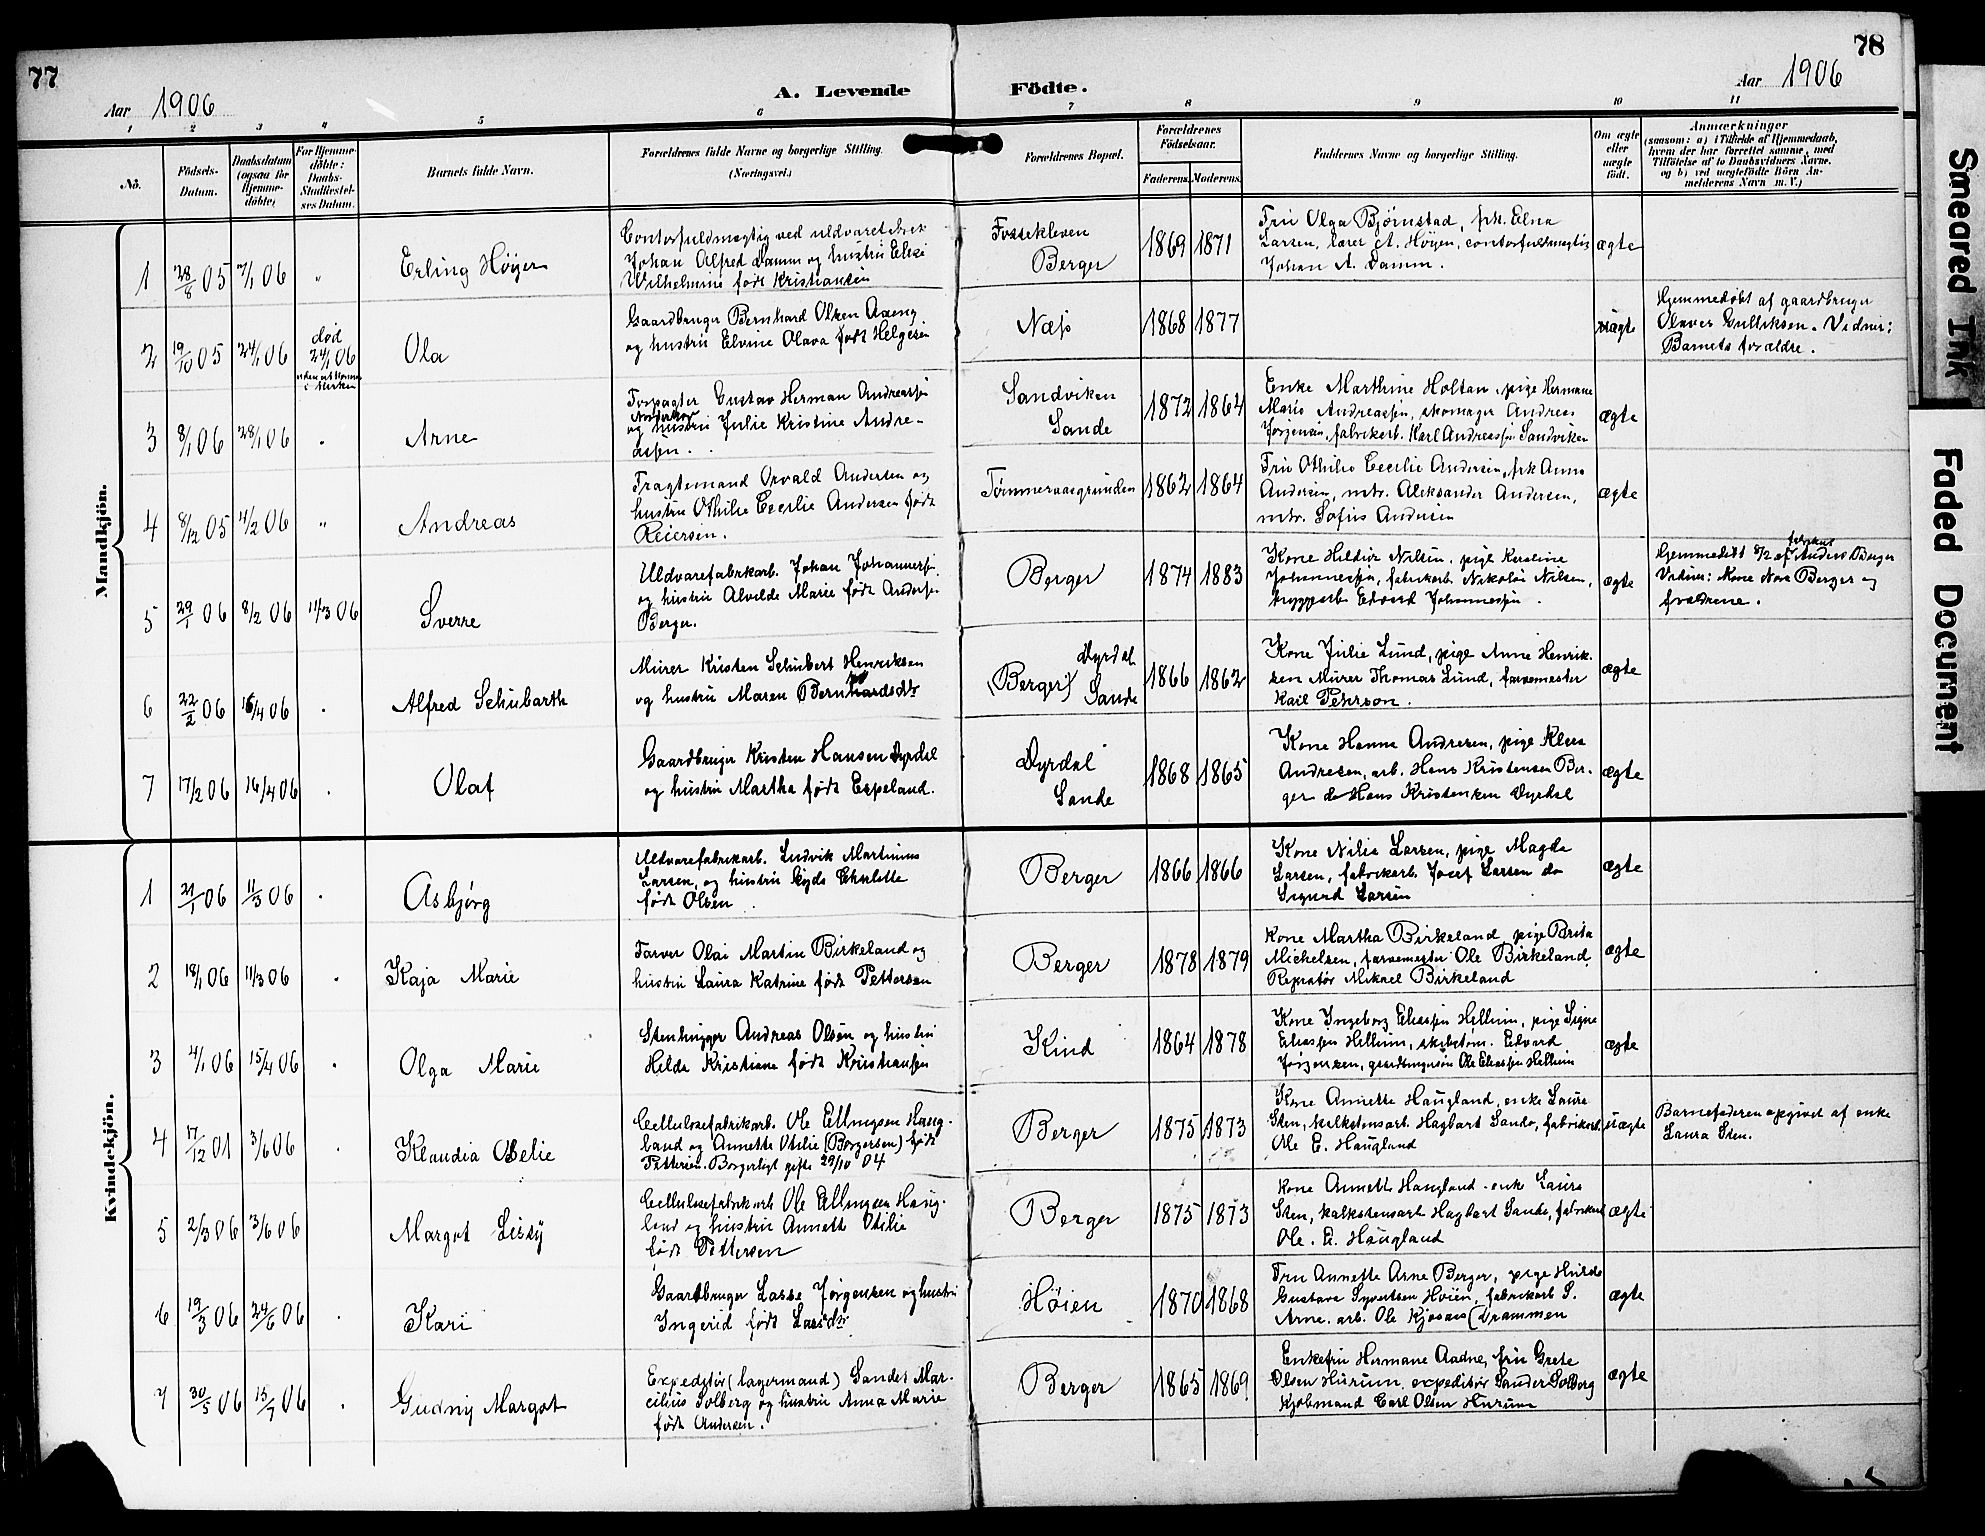 77
78
Aar 1906
A. Levende Födte.
Aar 1906
1 2 3 4 5 6 7 8 9 10 11
No.
Födsels-Datum.
Daabsdatum (ogsaa for Hjemmedöbte)
For Hjemmedöbte: Daabs-Stadfæstelses Datum.
Barnets fulde Navn.
Forældrenes fulde Navne og borgerlige Stilling. (Næringsvei.)
Forældrenes Bopæl.
Forældrenes Födselsaar.
Faderens. Moderens.
Faddernes Navne og borgerlige Stilling.
Om ægte eller uægte födt.
Anmærkninger
(saasom: a) i Tilfælde af Hjemmedaab, hvem der har forrettet samme, med Tilföielse af to Daabsvidners Navne, og b) ved uægtefödte Börn Anmelderens Navn m. V.)
Mandkjön.
1 28/8 05 7/1 06 " Erling Höyer
Contorfuldmægtig ved uldvarefabrik
Johan Alfred Damm og hustru Elise
Wilhelmine født Kristiansen
Fossekleven
Berger
1869 1871
Fru Olga Bjørnstad, frk. Elna
Larsen, lærer A. Höyen, contorfuldmægtig
Johan A. Damm.
ægte
2 19/10 05 24/1 06
død
24/1 06
Ola
Gaardbruger Bernhard Olsen Aaeng
og hustru Elvine Olava født Helgesen
Næs
1868 1877
ægte
Hjemmedøbt af gaardbruger
Olaves Gulliksen. Vidner:
Barnets forældre.
3 8/1 06 28/1 06 . Arne
Forpagter Gustav Herman Andreassen
og hustru Julie Kristine Andre-
assen.
Sandviken
Sande
1872 1864
Enke Marthine Holtan, pige Hermane
Marie Andreassen, skomager Andreas
Jørgensen, fabrikarb. Karl Andreassen Sandviken
ægte
4 8/12 05 4/2 06 " Andreas
Fragtemand Osvald Andersen og
hustru Othilie Cecilie Andersen født
Reiersen.
Tømmeraasgrunden
1862 1864
Fru Othilie Cecilie Andersen, frk Anna
Andersen, mtr. Aleksander Andersen,
mtr. Sofus Andersen
ægte
5 29/1 06 8/2 06 11/3 06 Sverre
Uldvarefabrikarb. Johan Johannessen
og hustru Alvilde Marie født Andersen
Berger.
Berger
1874 1883
Kone Hildur Nilsen, pige Karoline
Johannessen, fabrikarb. Nikolai Nilsen,
bryggearb. Edvard Johannessen.
ægte
Hjemmedøbt 8/2 af Anders Berger
Vidner: Kone Nora Berger og
forældrene.
6 22/2 06 16/4 06 . Alfred Schubarth
Murer Kristen Schubert Henriksen
og hustru Maren Bernhardsdtr
Dyrdal
(Berger) Sande
1866 1862
Kone Julie Lund, pige Anne Henrik-
sen Murer Thomas Lund, farvemester
Karl Pehrson.
ægte
7 17/2 06 16/4 06 . Olaf
Gaardbruger Kristen Hansen Dyrdal
og hustru Martha født Espeland.
Dyrdal
Sande
1868 1865
Kone Hanna Andresen, pige Klara
Andresen, arb. Hans Kristensen Ber-
ger do Hans Kristensen Dyrdal
ægte
Kvindekjön.
1 21/1 06 11/3 06 . Asbjørg
Uldvarefabrikarb. Ludvik Martinius
Larsen, og hustru Lyda Charlotte
født Olsen.
Berger
1866 1866
Kone Nilia Larsen, pige Magda
Larsen, fabrikarb. Josef Larsen do
Sigurd Larsen
ægte
2 18/1 06 11/3 06 . Kaja Marie
Farver Olai Martin Birkeland og
hustru Laura Katrine født Pettersen
Berger
1878 1879
Kone Martha Birkeland, pige Brita
Michelsen, farvemester Ole Birkeland,
Reparatør Mikael Birkeland
ægte
3 4/1 06 15/4 06 . Olga Marie
Stenhugger Andreas Olsen og hustru
Hilda Kristiane født Kristiansen
Kind
1864 1878
Kone Ingeborg Eliassen Hellum, pige Signe
Eliassen Hellum, skibstøm. Edvard
Jørgensen, gaardbrugersøn Ole Eliassen Hellum
ægte
4 17/12 01 3/6 06 . Klaudia Oselie
Cellulosefabrikarb. Ole Ellingsen Haug-
land og Annette Otilie (Borgersen) født
Pettersen. Borgerligt gifte 29/10 04
Berger
1875 1873
Kone Annette Haugland, enke Laura
Sten, kalkstensarb. Hagbart Sande, fabrikarb.
Ole E. Haugland
uægte
Barnefaderen opgivet af enke
Laura Sten.
5 2/3 06 3/6 06 Margot Lissy
Cellulosefabrikarb Ole Ellingsen Haug-
land og hustru Annette Otilie
født Pettersen
Berger
1875 1873
Kone Annette Haugland, enke Laura
Sten, kalkstensarb Hagbart Sande, fabrikarb
Ole. E. Haugland
ægte
6 19/3 06 24/6 06 . Kari
Gaardbruger Lasse Jørgensen og hustru
Ingerid født Larsdtr
Høien
1870 1868
Fru Annette Arne Berger, pige Hulda
Gustava Syvertsen Høien, fabrikarb S.
Arne. arb. Ole Kjosaas (Drammen
ægte
7 30/5 06 15/7 06 . Gudny Margot
Expeditør (lagermand) Sander Mar-
cilius Solberg og hustru Anna Marie
født Andersen.
Berger
1865 1869
Enkefru Hermane Aadne, fru Grete
Olsen Hurum, expeditør Sander Solberg
Kjøbmand Carl Olsen Hurum
ægte
Smeared Ink
Faded Document